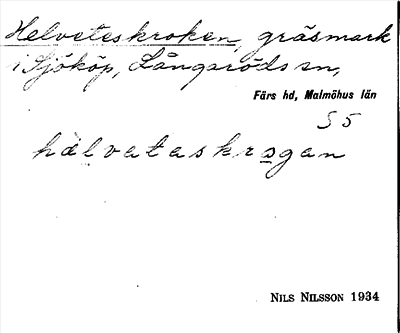 Helveteskroken, gräsmark
i Sjököp, Långaröds sn,
Färs hd, Malmöhus län
S 5
hälvetaskrogan
NILS NILSSON 1934